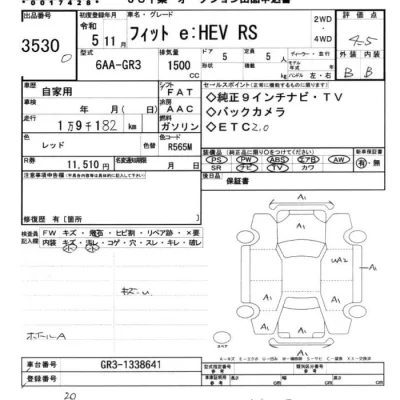 *0017428*
出品番号 3530
初度登録年月 令和 5年11月
車名・グレード フィット e:HEV RS
2WD・4WD
評価点 4-5
型式 6AA-GR3
排気量 1500 CC
ドア 5 ドア
定員 5 人
外装 B 内装 B
車歴 自家用
シフト FAT
セールスポイント
車検 年 月( 日)
冷房 AAC
◇純正9インチナビ・TV
走行 1万9千182 km
燃料 ガソリン
◇バックカメラ
◇ETC2.0
色 レッド
色替 R565M
R券 11,510 円
名変期限 月 日
PS PW ABS エアB AW
SR ナビ TV カワ
有・無
後日品 保証書
注意事項申告欄
修復歴 有( )
検査員記入欄
FW キズ・飛石・ヒビ割・リペア跡・×要
内装 キズ・汚レ・コゲ・穴・スレ・キレ・破レ
A1
UA2
A1
キズ.u.
ボボールA
車台番号 GR3-1338641
登録番号
型式指定番号
類別区分番号
20